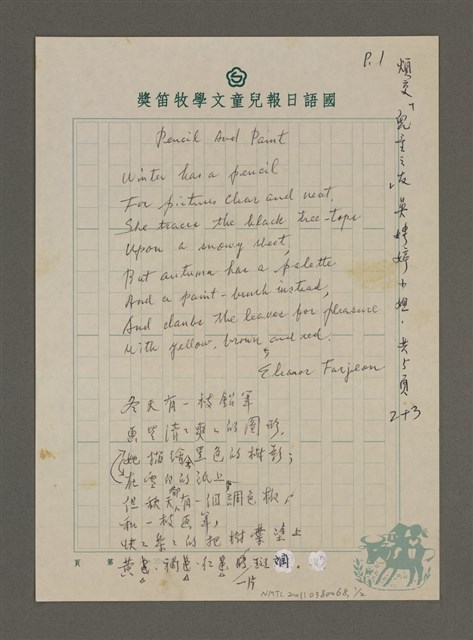 P.1
煩交「兒童之友」吳婷婷小姐．共5頁
2+3
國語日報兒童文學牧笛獎
Pencil And Paint
Winter has a pencil
For pictures clear and neat,
She traces the black tree-tops
Upon a snowy sheet,
But autumn has a palette
And a paint-brush instead,
And daubs the leaves for pleasure
With yellow, brown and red.
Eleanor Farjeon
冬天有一枝鉛筆
畫些清清爽爽的圖形，
她描繪黑色的樹影；
在雪白的紙上
但秋天卻有一個調色板，
和一枝畫筆，
快快樂樂的把樹葉塗上
黃色、褐色、紅色 一片 斑斕。
第 頁
NMTL 20110380068, 1/2